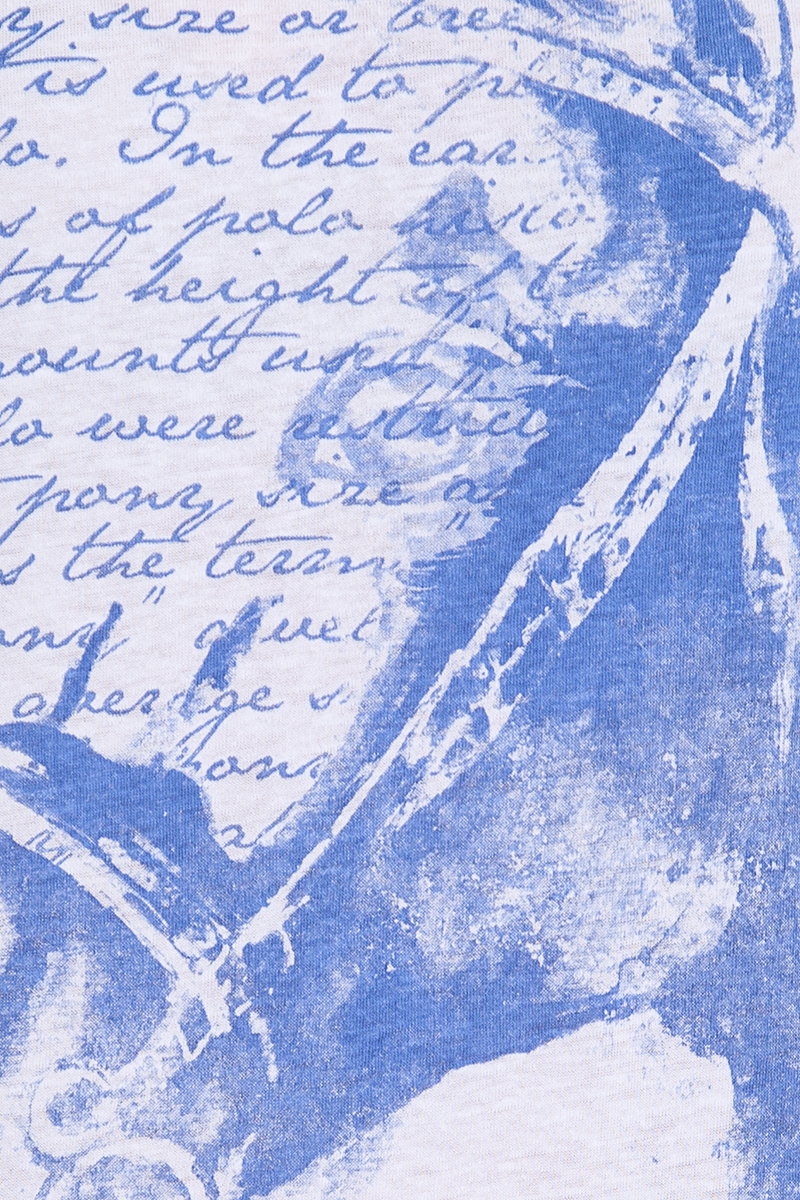 y size or bree
t is used to p
lo. In the ear
s of polo histo
the height of
mounts used
lo were restric
pony size a
s the term
ony" duel
average s
pons